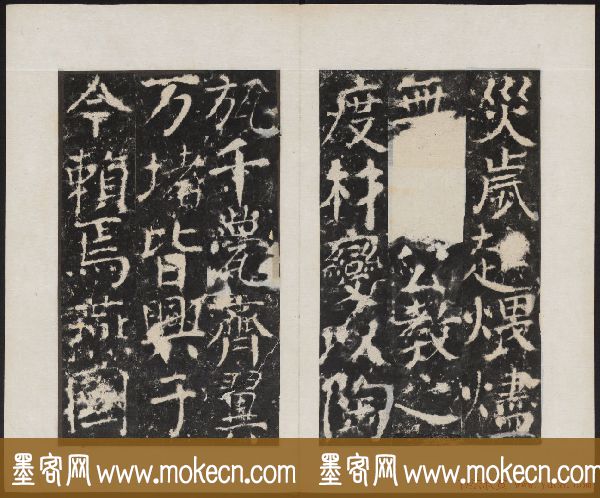 災歲起煨燼
無公教之
度材變以陶
瓬千甍齊翼
万堵皆興于
今賴焉燕國
墨客网 www.mokecn.com 墨客网 www.mokecn.com